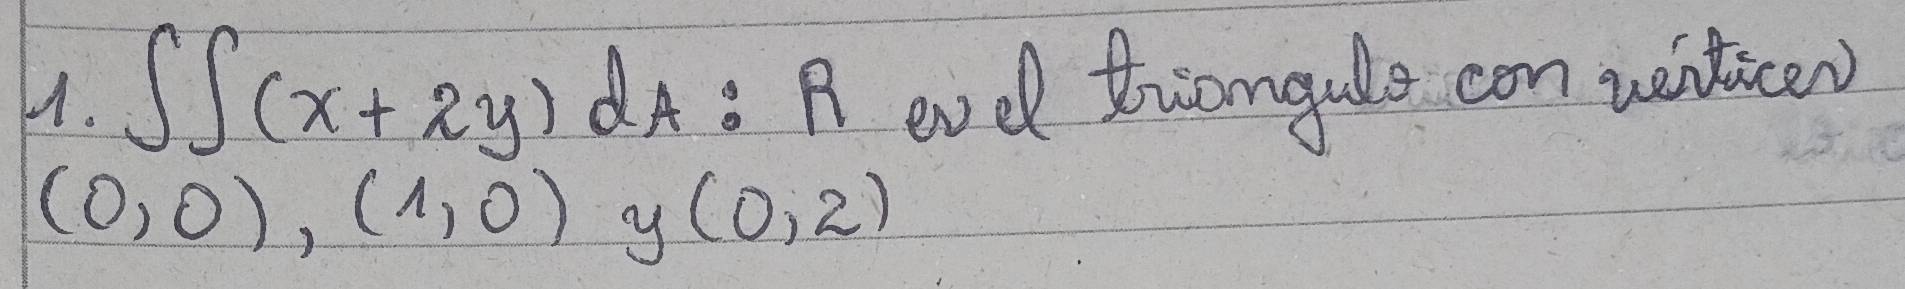 1. ∫∫(x+2y) dA : R es el triangulo con vértices
(0,0), (1,0) y (0,2)